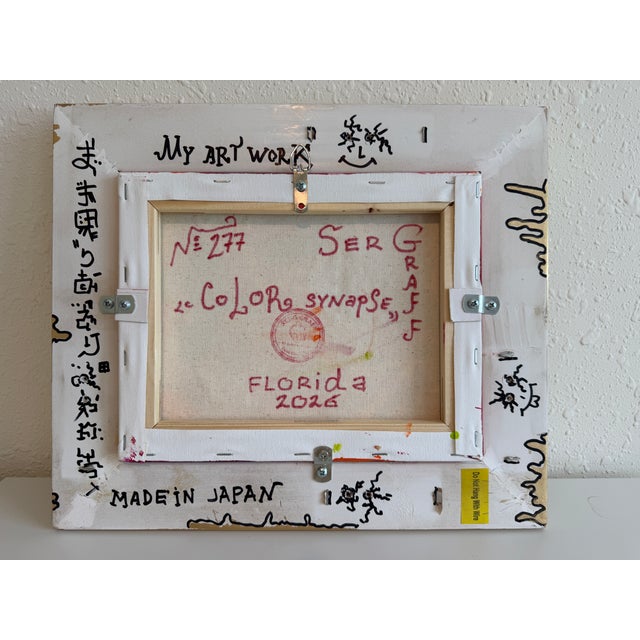 MY ART WORK
№ 277
SER GRAFF
"COLOR SYNAPSE"
FLORidA
2026
MADE iN JAPAN
Do Not Hang With Wire